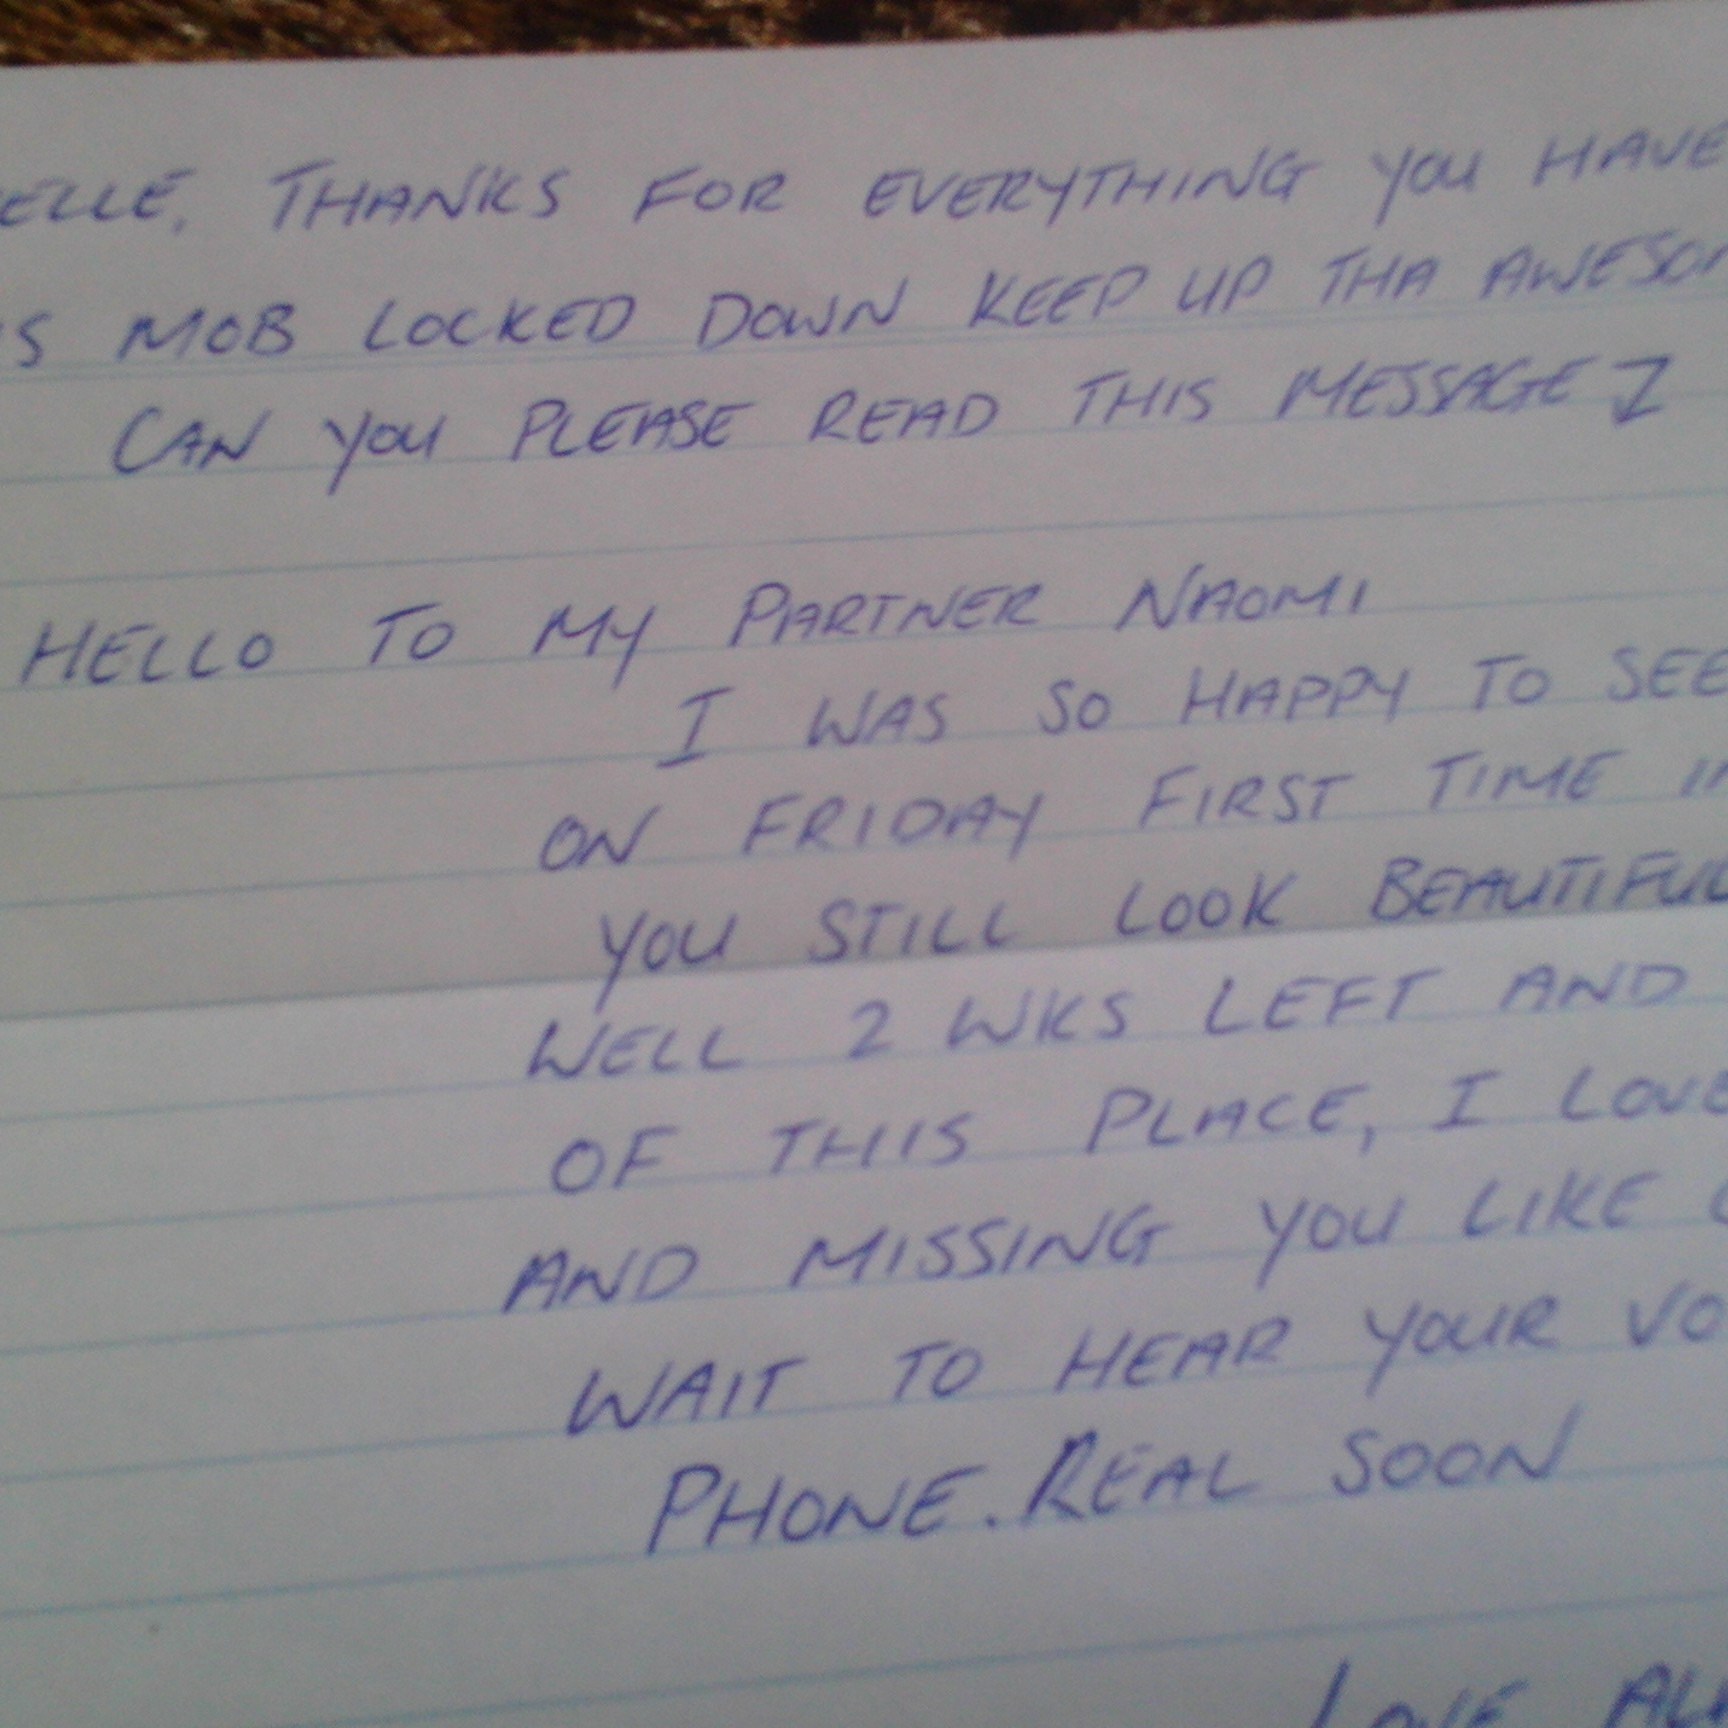 ELLE, THANKS FOR EVERYTHING YOU HAVE
S MOB LOCKED DOWN KEEP UP THA AWESO
CAN YOU PLEASE READ THIS MESSAGE
HELLO TO MY PARTNER NAOMI
I WAS SO HAPPY TO SEE
ON FRIDAY FIRST TIME I
YOU STILL LOOK BEAUTIFUL
WELL 2 WKS LEFT AND
OF THIS PLACE, I LOVE
AND MISSING YOU LIKE
WAIT TO HEAR YOUR VO
PHONE. REAL SOON
LOVE AL